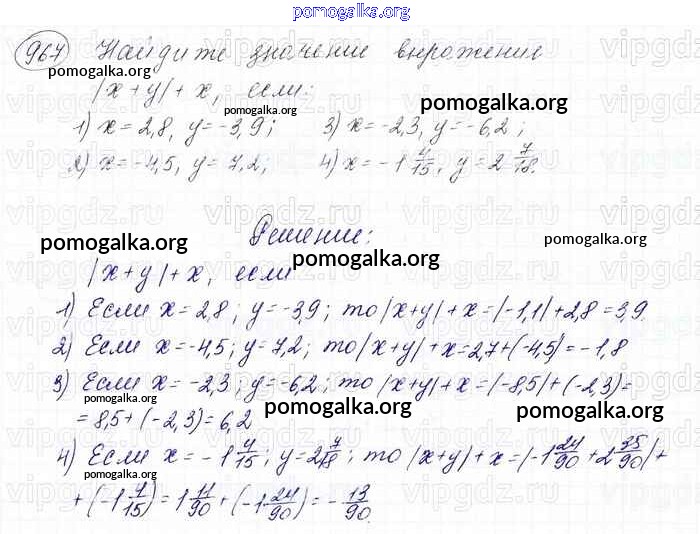 pomogalka.org
967 Найдите значение выражения
pomogalka.org
|x+y|+x, если:
pomogalka.org pomogalka.org
1) x=2,8, y=-3,9; 3) x=-2,3, y=-6,2;
2) x=-4,5, y=7,2, 4) x=-1 4/15, y=2 7/18.
vipgdz.ru vipgdz.ru vipgdz.ru vipgdz.ru
Решение:
pomogalka.org pomogalka.org
|x+y|+x, если
pomogalka.org
1) Если x=2,8; y=-3,9; то |x+y|+x=|-1,1|+2,8=3,9.
2) Если x=-4,5; y=7,2; то |x+y|+x=2,7+(-4,5)=-1,8
3) Если x=-2,3; y=-6,2; то |x+y|+x=|-8,5|+(-2,3)=
pomogalka.org
=8,5+(-2,3)=6,2
pomogalka.org pomogalka.org
4) Если x=-1 4/15; y=2 7/18; то |x+y|+x=|-1 24/90+2 35/90|+
pomogalka.org
+(-1 4/15)=1 11/90+(-1 24/90)=-13/90.
pomogalka.org